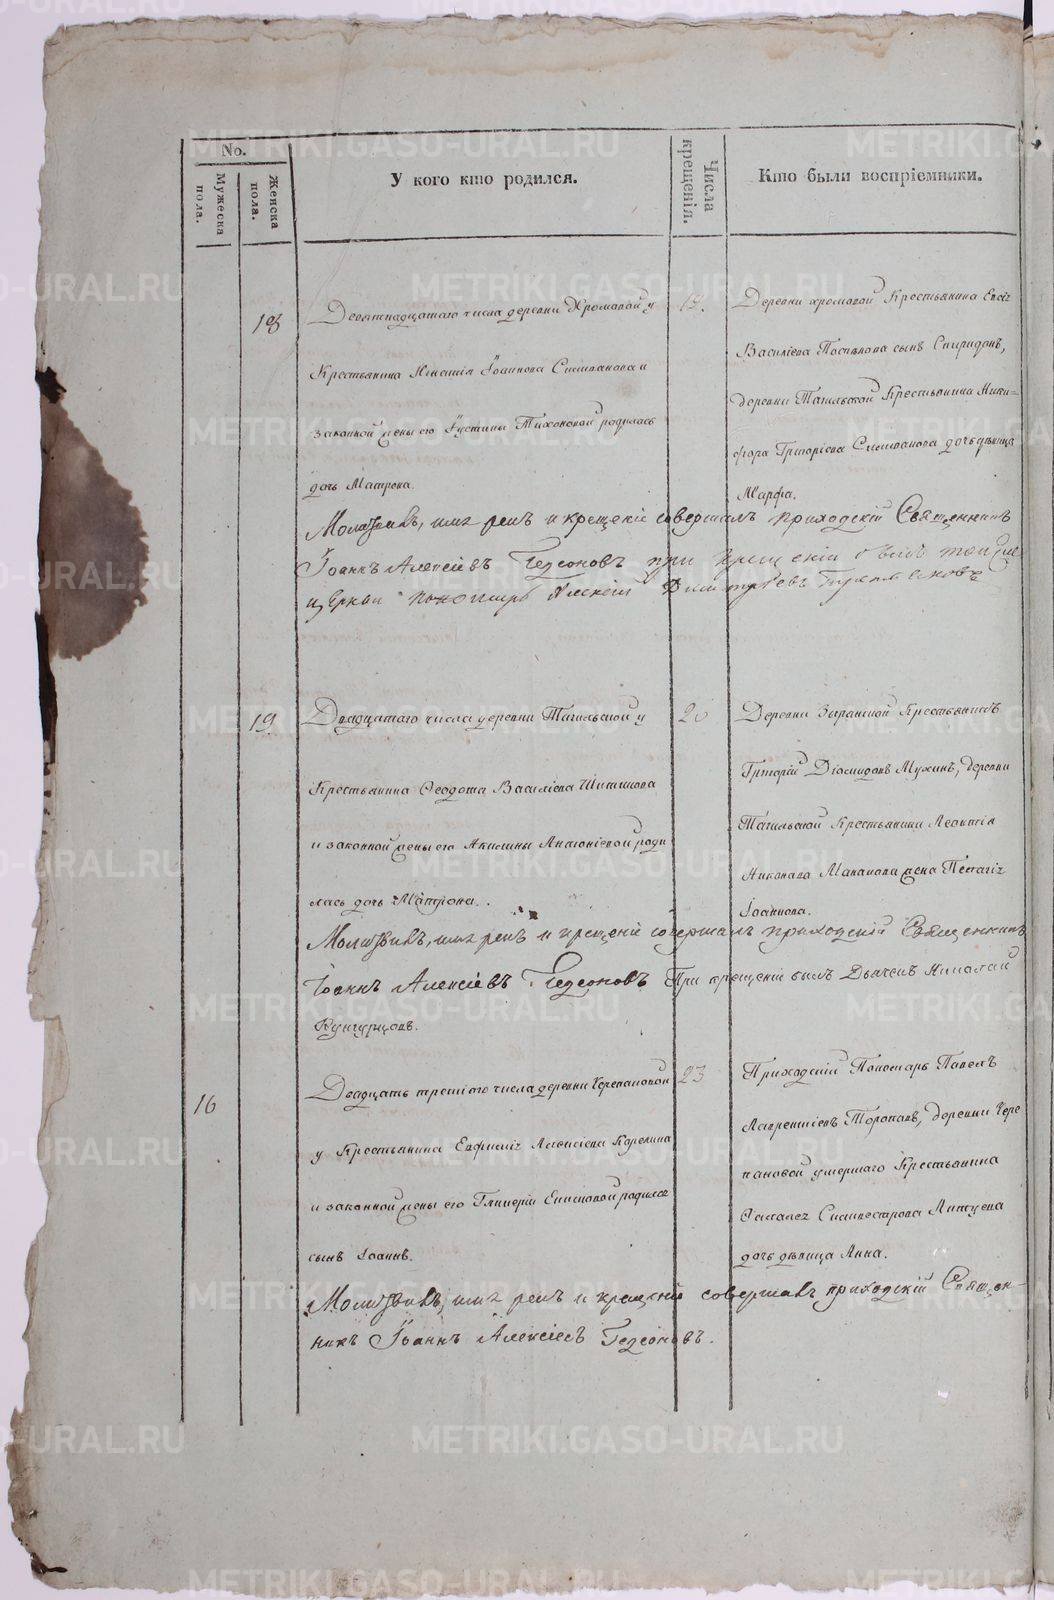 No.
Мужеска пола.
Женска пола.
У кого кто родился.
Числа крещенія.
Кто были воспріемники.
18
Девятнадцатаго числа деревни Хромовой у
Крестьянина Игнатія Іоаннова Симпанова и
законной жены его Іустины Тихоновой родилась
дочь Матрена.
19.
Деревни хромовой Крестьянина
Василіева Поспелова сынъ Спиридонъ,
деревни Тагильской Крестьянина Ники-
фора Григоріева Симпанова дочь девица
Марфа.
Молитвилъ, имя рекъ и крещеніе совершалъ приходскій Священникъ
Іоаннъ Алексіевъ Гедеоновъ при крещеніи былъ тойже
церкви пономарь Алексій Димитріевъ
19.
Двадцатаго числа деревни Тагильской у
Крестьянина Феодота Василіева Шишкова
и законной жены его Акилины Антоніевой роди
лась дочь Матрона.
20
Деревни Зыранской Крестьянинъ
Григорій Діомидовъ Мухинъ, деревни
Тагильской Крестьянина Леонтія
Никонова Маканова жена Пелагія
Іоаннова.
Молитвилъ, имя рекъ и крещеніе совершалъ приходскій Священникъ
Іоаннъ Алексіевъ Гедеоновъ При крещеніи былъ Дьячекъ Николай
Кунгурцовъ.
16
Двадцать третіего числа деревни Черепановой
у Крестьянина Евфимія Алексіева Корелина
и законной жены его Гликеріи Енисіовой родился
сынъ Іоаннъ.
23
Приходскій Пономарь Павелъ
Лаврентіевъ Тороповъ, деревни Чере
пановой умершаго Крестьянина
Силивестрова
дочь девица Анна.
Молитвилъ, имя рекъ и крещеніе совершалъ приходскій Священ-
никъ Іоаннъ Алексіевъ Гедеоновъ.
METRIKI.GASO-URAL.RU